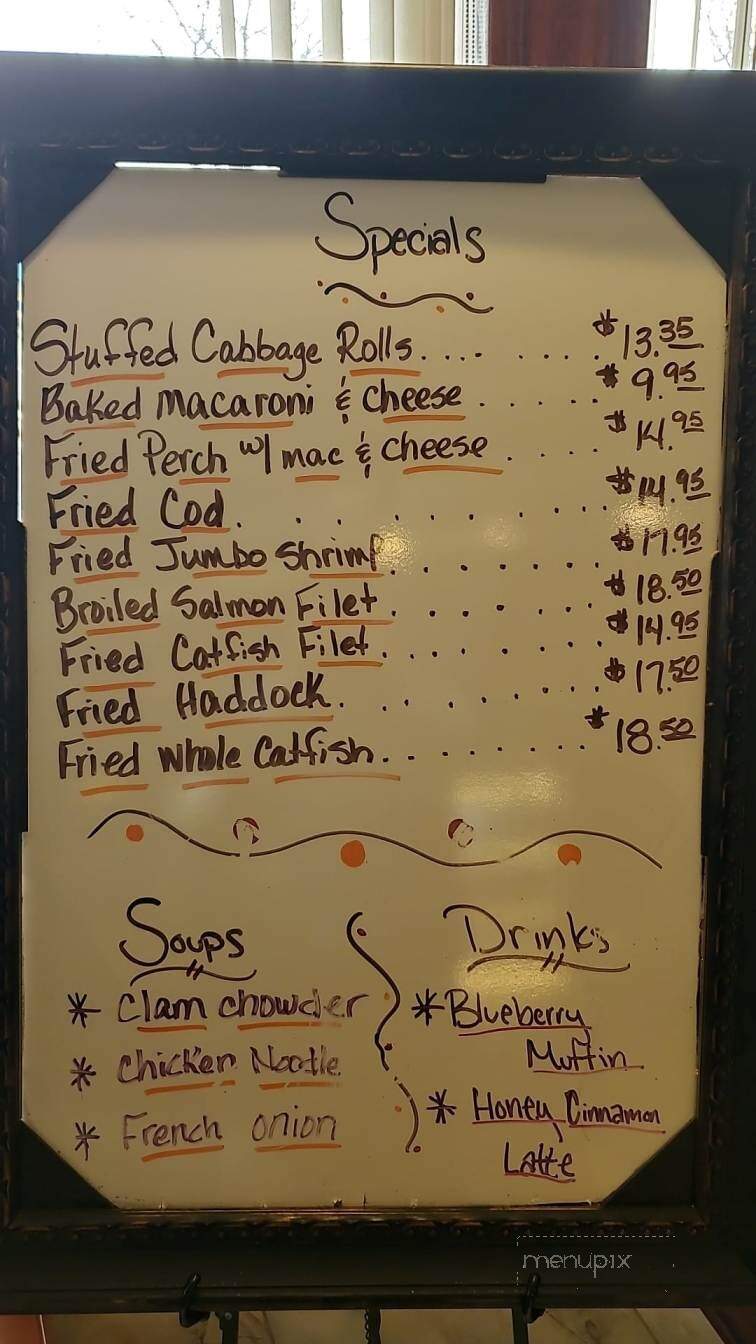 Specials
Stuffed Cabbage Rolls.... ..... $13.35
Baked macaroni & cheese ...... $9.95
Fried Perch w/ mac & cheese ..... $14.95
Fried Cod. ......... $14.95
Fried Jumbo Shrimp ....... $17.95
Broiled Salmon Filet ....... $18.50
Fried Catfish Filet ....... $14.95
Fried Haddock. ........ $17.50
Fried whole Catfish......... $18.50
Soups
* Clam chowder
* Chicken Noodle
* French onion
Drinks
* Blueberry
Muffin
* Honey Cinnamon
Latte
menupix